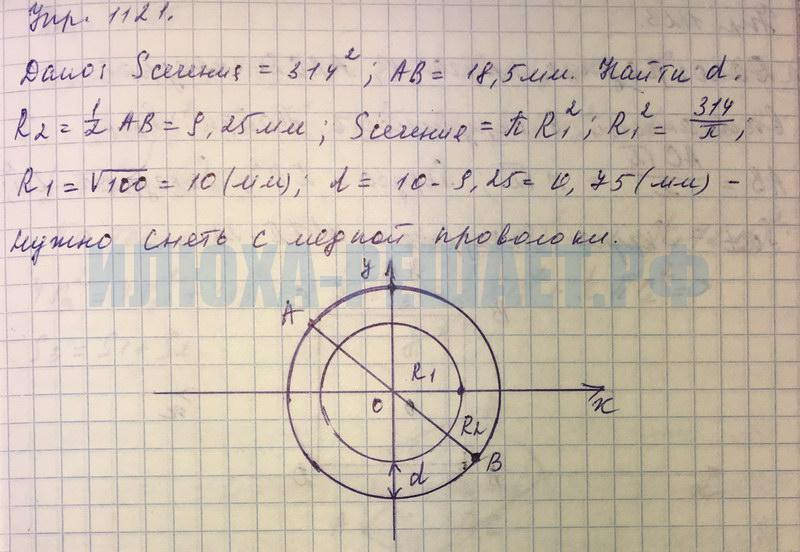 Упр. 1121.
Дано: Sсечения = 314²; AB = 18,5мм. Найти d.
R2 = 1/2 AB = 9,25мм; Sсечения = π R₁²; R₁² = 314/π;
R1 = √100 = 10(мм); d = 10 - 9,25 = 0,75(мм) -
нужно снеть с медной проволоки.
ИЛЮХА-РЕШАЕТ.РФ
y
A
R1
0
x
R2
B
d